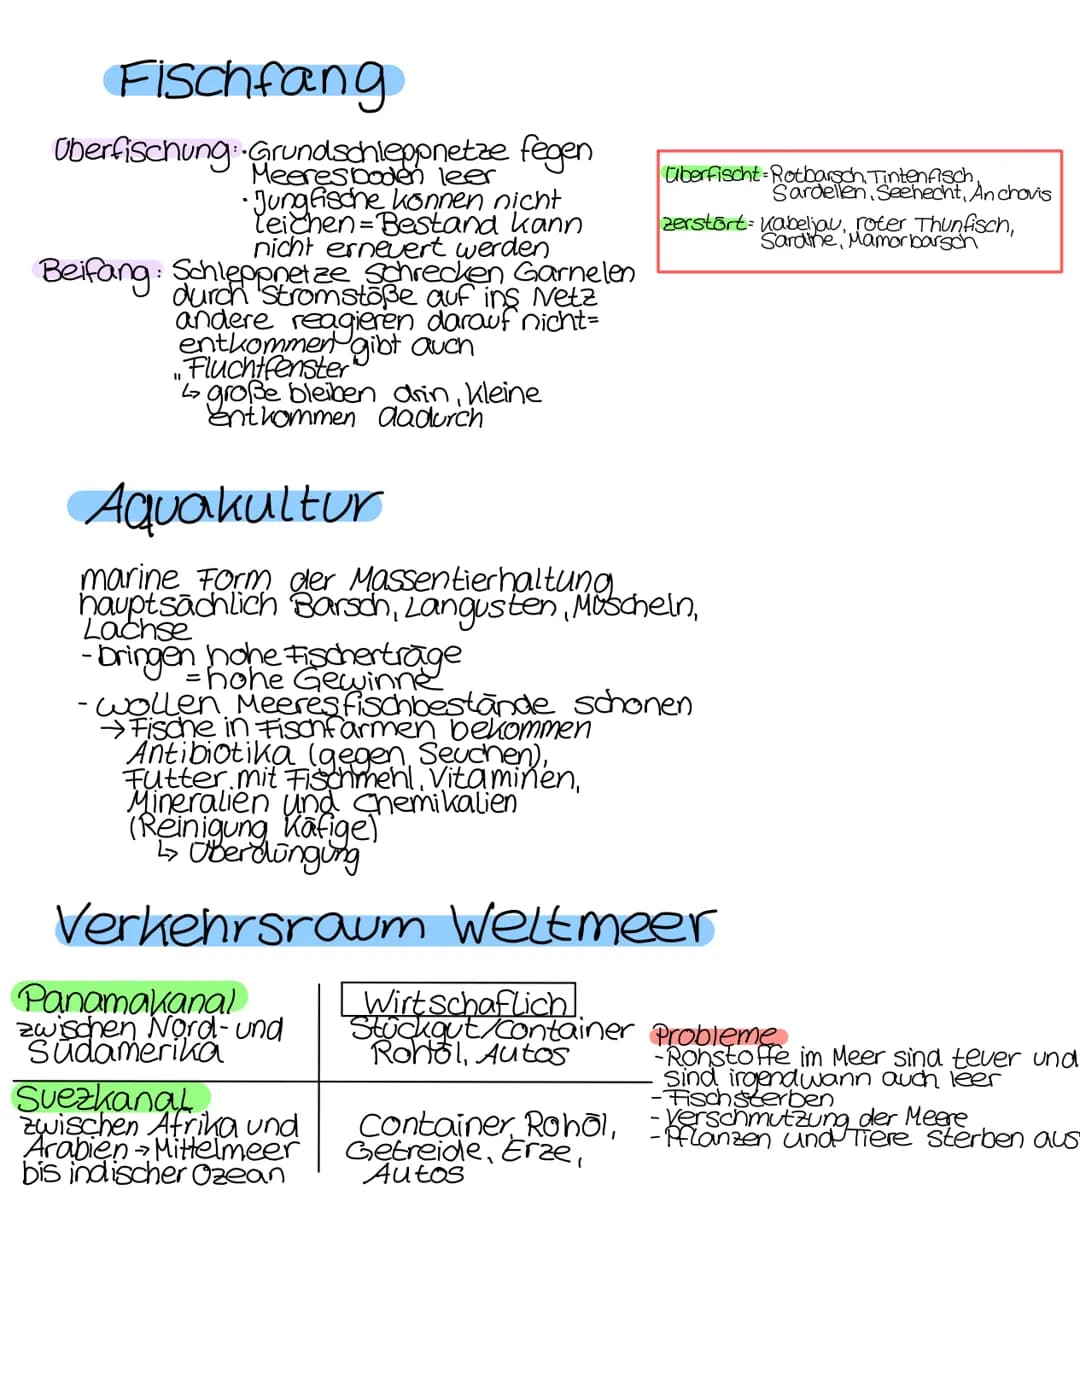 Fischfang
Überfischung: · Grundschleppnetze fegen
Meeresboden leer
· Jungfische können nicht
leichen = Bestand kann
nicht erneuert werden
Beifang: Schleppnetze schrecken Garnelen
durch Stromstöße auf ins Netz
andere reagieren darauf nicht=
entkommen gibt auch
„Fluchtfenster"
↳ große bleiben drin, kleine
entkommen dadurch
Überfischt = Rotbarsch, Tintenfisch,
Sardellen, Seehecht, Anchovis
zerstört = Kabeljau, roter Thunfisch,
Sardine, Mamorbarsch
Aquakultur
marine Form der Massentierhaltung
hauptsächlich Barsch, Langusten, Muscheln,
Lachse
- bringen hohe Fischerträge
= hohe Gewinne
- wollen Meeresfischbestände schonen
→ Fische in Fischfarmen bekommen
Antibiotika (gegen Seuchen),
Futter mit Fischmehl, Vitaminen,
Mineralien und Chemikalien
(Reinigung Käfige)
↳ Überdüngung
Verkehrsraum Weltmeer
Panamakanal
zwischen Nord- und
Südamerika
Wirtschaflich
Stückgut/Container
Rohöl, Autos
Suezkanal
zwischen Afrika und
Arabien → Mittelmeer
bis indischer Ozean
Container, Rohöl,
Getreide, Erze,
Autos
Probleme
- Rohstoffe im Meer sind teuer und
sind irgendwann auch leer
- Fischsterben
- Verschmutzung der Meere
- Pflanzen und Tiere sterben aus